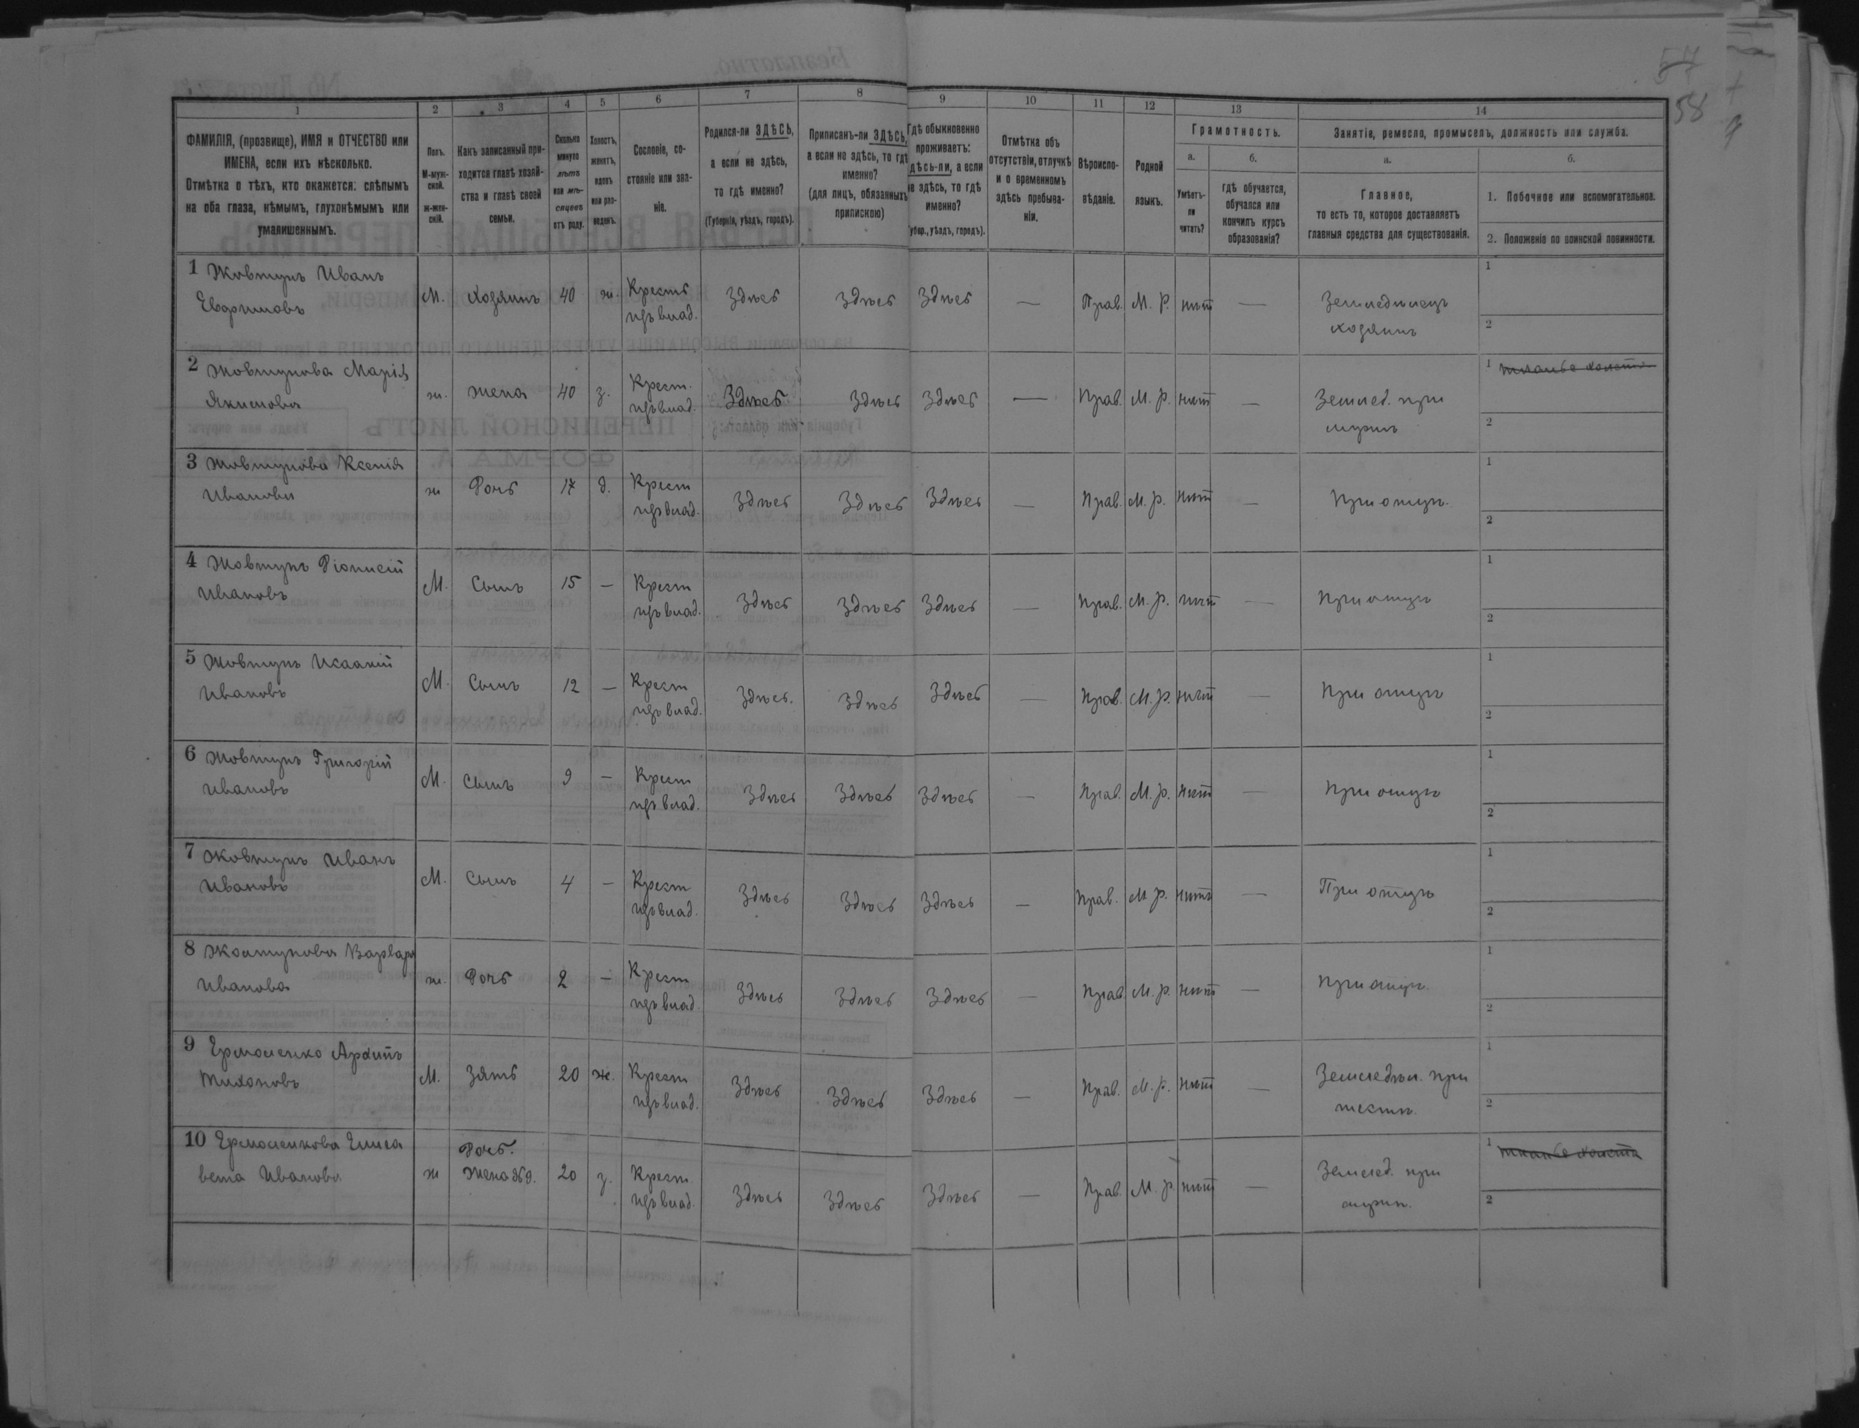 57
58
1 2 3 4 5 6 7 8 9 10 11 12 13 14
ФАМИЛІЯ, (прозвище), ИМЯ и ОТЧЕСТВО или
ИМЕНА, если ихъ нѣсколько.
Отмѣтка о тѣхъ, кто окажется: слѣпымъ
на оба глаза, нѣмымъ, глухонѣмымъ или
умалишеннымъ.
Полъ.
М-муж-
ской.
ж-жен-
скій.
Какъ записанный при-
ходится главѣ хозяй-
ства и главѣ своей
семьи.
Сколько
минуло
лѣтъ
или мѣ-
сяцевъ
отъ роду.
Холостъ,
женатъ,
вдовъ
или раз-
веденъ.
Сословіе, со-
стояніе или зва-
ніе.
Родился-ли ЗДѢСЬ,
а если не здѣсь,
то гдѣ именно?
(Губернія, уѣздъ, городъ).
Приписанъ-ли ЗДѢСЬ,
а если не здѣсь, то гдѣ
именно?
(для лицъ, обязанныхъ
припискою)
Гдѣ обыкновенно
проживаетъ:
здѣсь-ли, а если
не здѣсь, то гдѣ
именно?
(Губер., уѣздъ, городъ).
Отмѣтка объ
отсутствіи, отлучкѣ
и о временномъ
здѣсь пребыва-
ніи.
Вѣроиспо-
вѣданіе.
Родной
языкъ.
Грамотность.
а. б.
Умѣетъ-
ли
читать?
гдѣ обучается,
обучался или
кончилъ курсъ
образованія?
Занятіе, ремесло, промыселъ, должность или служба.
а. б.
Главное,
то есть то, которое доставляетъ
главныя средства для существованія.
1. Побочное или вспомогательное.
2. Положеніе по воинской повинности.
1 Жовтунъ Иванъ
Евфимовъ
М. Хозяинъ 40 ж. Крестъ
изъ влад. Здѣсь Здѣсь Здѣсь — Прав. М. Р. нѣт —
Земледѣлецъ
хозяинъ
1
2
2 Жовтунова Марія
Якимова
ж. жена 40 з. Крест.
изъ влад. Здѣсь Здѣсь Здѣсь — Прав. М. р. нѣт —
Землед. при
мужѣ
1
2
3 Жовтунова Ксенія
Иванова
ж Дочь 17 д. Крест
изъ влад. Здѣсь Здѣсь Здѣсь — Прав. М. р. нѣт —
При отцѣ.
1
2
4 Жовтунъ Діонисій
Ивановъ
М. Сынъ 15 — Крест
изъ влад. Здѣсь Здѣсь Здѣсь — Прав. М. р. нѣт —
При отцѣ
1
2
5 Жовтунъ Исаакій
Ивановъ
М. Сынъ 12 — Крест
изъ влад. Здѣсь. Здѣсь Здѣсь — Прав. М. р. нѣт —
При отцѣ
1
2
6 Жовтунъ Григорій
Ивановъ
М. Сынъ 9 — Крест
изъ влад. Здѣсь Здѣсь Здѣсь — Прав. М. р. нѣт —
При отцѣ
1
2
7 Жовтунъ Иванъ
Ивановъ
М. Сынъ 4 — Крест
изъ влад. Здѣсь Здѣсь Здѣсь — Прав. М. р. нѣтъ —
При отцѣ
1
2
8 Жовтунова Варвара
Иванова
ж. Дочь 2 — Крест
изъ влад Здѣсь Здѣсь Здѣсь — Прав. М. р. нѣтъ —
При отцѣ.
1
2
9 Ермоленко Архипъ
Тихоновъ
М. Зять 20 ж. Крест
изъ влад. Здѣсь Здѣсь Здѣсь — Прав. М. р. нѣт —
Земледѣл. при
тестѣ.
1
2
10 Ермоленкова Елиса
вета Иванова
ж Дочь.
Жена №9. 20 з. Крест
изъ влад. Здѣсь Здѣсь Здѣсь — Прав. М. р. нѣт —
Землед. при
мужѣ.
1
2